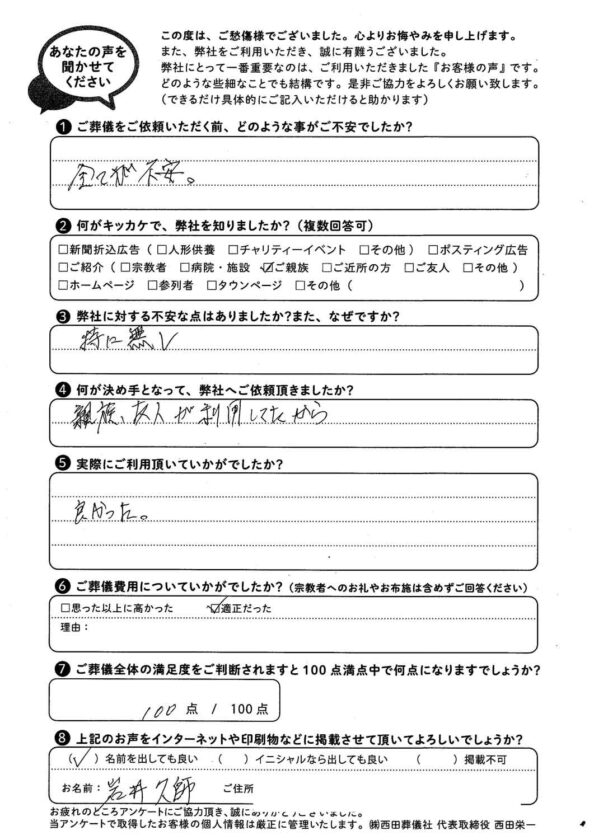 あなたの声を
聞かせて
ください
この度は、ご愁傷様でございました。心よりお悔やみを申し上げます。
また、弊社をご利用いただき、誠に有難うございました。
弊社にとって一番重要なのは、ご利用いただきました『お客様の声』です。
どのような些細なことでも結構です。是非ご協力をよろしくお願い致します。
(できるだけ具体的にご記入いただけると助かります)
❶ご葬儀をご依頼いただく前、どのような事がご不安でしたか?
全てが不安。
❷何がキッカケで、弊社を知りましたか?(複数回答可)
□新聞折込広告(□人形供養 □チャリティーイベント □その他) □ポスティング広告
□ご紹介(□宗教者 □病院・施設 ☑ご親族 □ご近所の方 □ご友人 □その他)
□ホームページ □参列者 □タウンページ □その他( )
❸弊社に対する不安な点はありましたか?また、なぜですか?
特に無し
❹何が決め手となって、弊社へご依頼頂きましたか?
親族、友人が利用してたから
❺実際にご利用頂いていかがでしたか?
良かった。
❻ご葬儀費用についていかがでしたか?(宗教者へのお礼やお布施は含めずご回答ください)
□思った以上に高かった ☑適正だった
理由:
❼ご葬儀全体の満足度をご判断されますと100点満点中で何点になりますでしょうか?
100点 / 100点
❽上記のお声をインターネットや印刷物などに掲載させて頂いてよろしいでしょうか?
(✓)名前を出しても良い ( )イニシャルなら出しても良い ( )掲載不可
お名前:岩井久師 ご住所
お疲れのところアンケートにご協力頂き、誠にありがとうございました。
当アンケートで取得したお客様の個人情報は厳正に管理いたします。㈱西田葬儀社 代表取締役 西田栄一